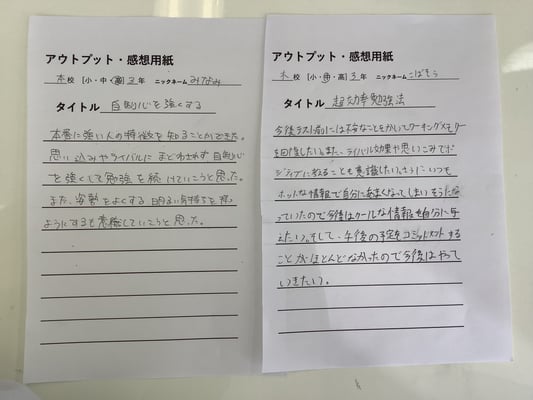 アウトプット・感想用紙
本校 [小・中・高] 3年 ニックネーム みなみ
タイトル 自制心を強くする
本番に強い人の特徴を知ることができた。
思い込みやライバルにまどわされず自制心
を強くして勉強を続けていこうと思った。
また、姿勢をよくする 明るい気持ちを
ようにすると意識していこうと思った。
アウトプット・感想用紙
校 [小・中・高] 3年 ニックネーム こばそう
タイトル 超効率勉強法
今後テスト前には不安なことをかいてワーキングメモリー
を回復したい。また、ライバル効果や思いこみでポ
ジティブに教ることも意識したい。さらに、いつも
ホットな情報で自分にあまくなってしまいそうだと思
っていたので今後はクールな情報を自分に与
えたい。そして、午後の予定をコミットメントする
ことがほとんどなかったので今後はやって
いきたい。